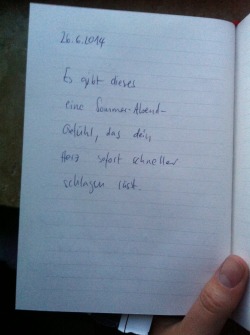 26.6.2014
Es gibt dieses
eine Sommer-Abend-
Gefühl, das dein
Herz sofort schneller
schlagen lässt.